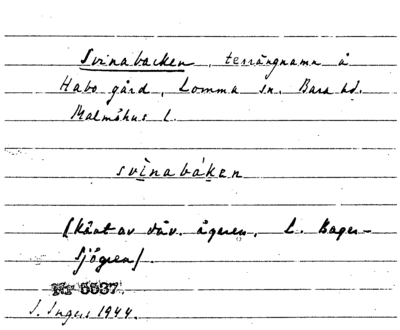 Svinabacken, terrängnamn å
Habo gård, Lomma sn. Bara hd.
Malmöhus l.
svìnabáken
[Känt av däv. ägaren, L. Bager-
Sjögren].
Nr 5537.
I. Ingers 1944.